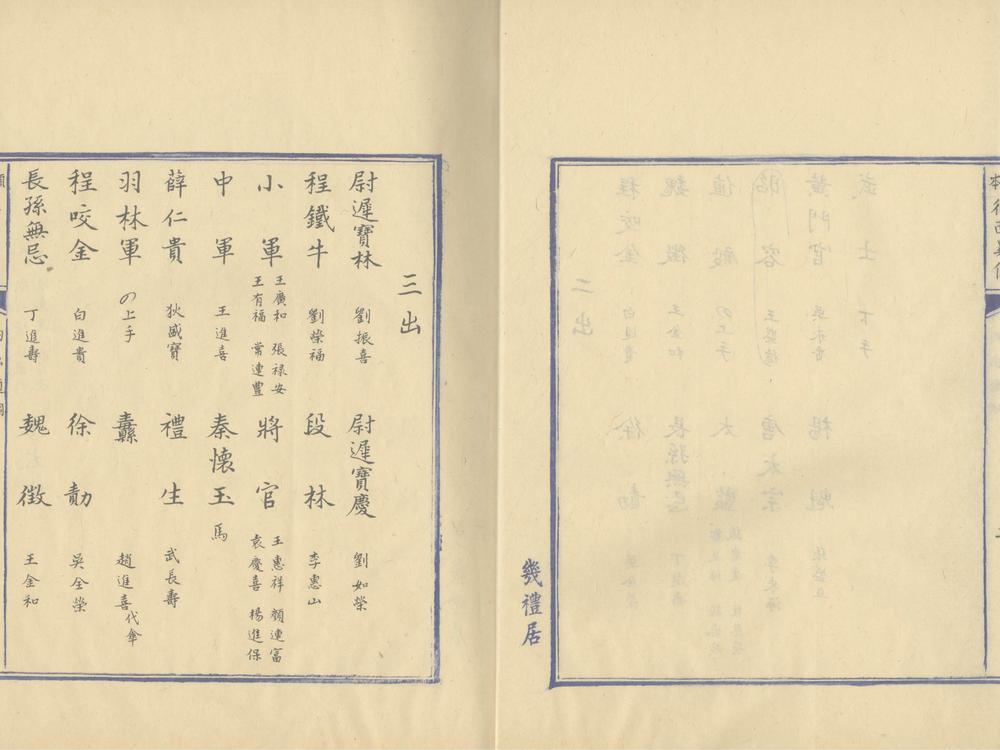 幾禮居
三出
尉遲寶林 劉振喜 尉遲寶慶 劉如榮
程鐵牛 劉榮福 段林 李惠山
小軍 王廣和 張祿安 王有福 常連豐 將官 王惠祥 顏連富 袁慶喜 楊進保
中軍 王進喜 秦懷玉 馬
薛仁貴 狄盛寶 禮生 武長壽
羽林軍 の上手 纛 趙進喜代傘
程咬金 白進貴 徐勣 吳全榮
長孫無忌 丁進壽 魏徵 王金和